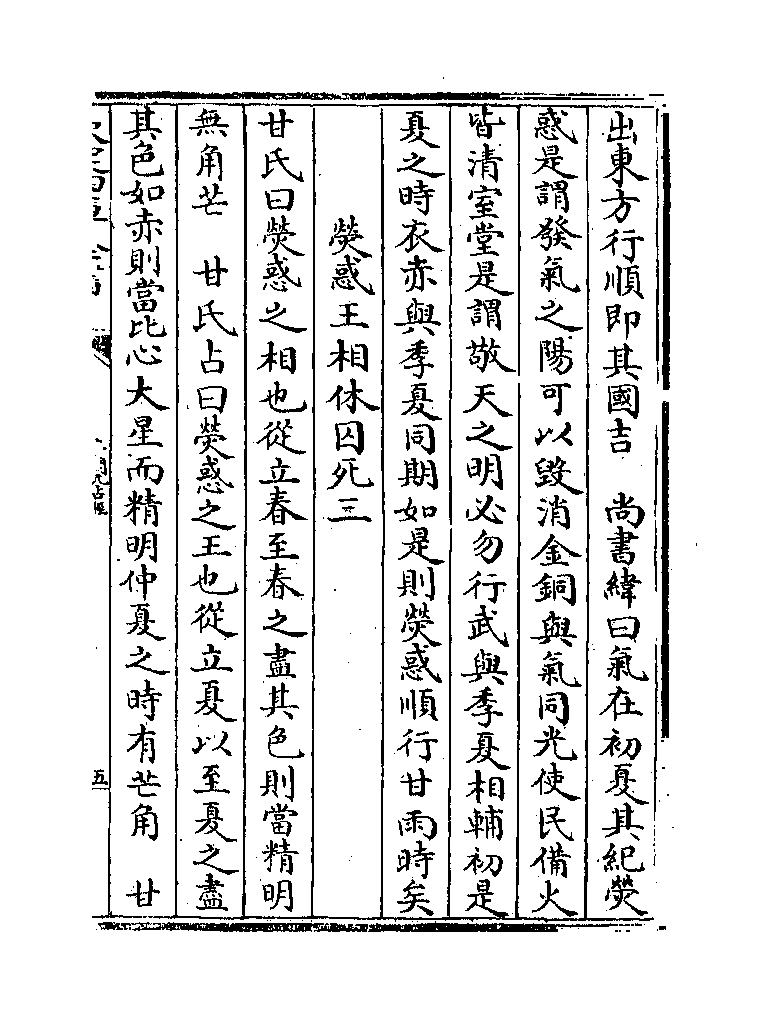 出東方行順即其國吉　尚書緯曰氣在初夏其紀熒
惑是謂發氣之陽可以毀消金銅與氣同光使民備火
皆清室堂是謂敬天之明必勿行武與季夏相輔初是
夏之時衣赤與季夏同期如是則熒惑順行甘雨時矣
熒惑王相休囚死三
甘氏曰熒惑之相也從立春至春之盡其色則當精明
無角芒　甘氏占曰熒惑之王也從立夏以至夏之盡
其色如赤則當比心大星而精明仲夏之時有芒角　甘
五